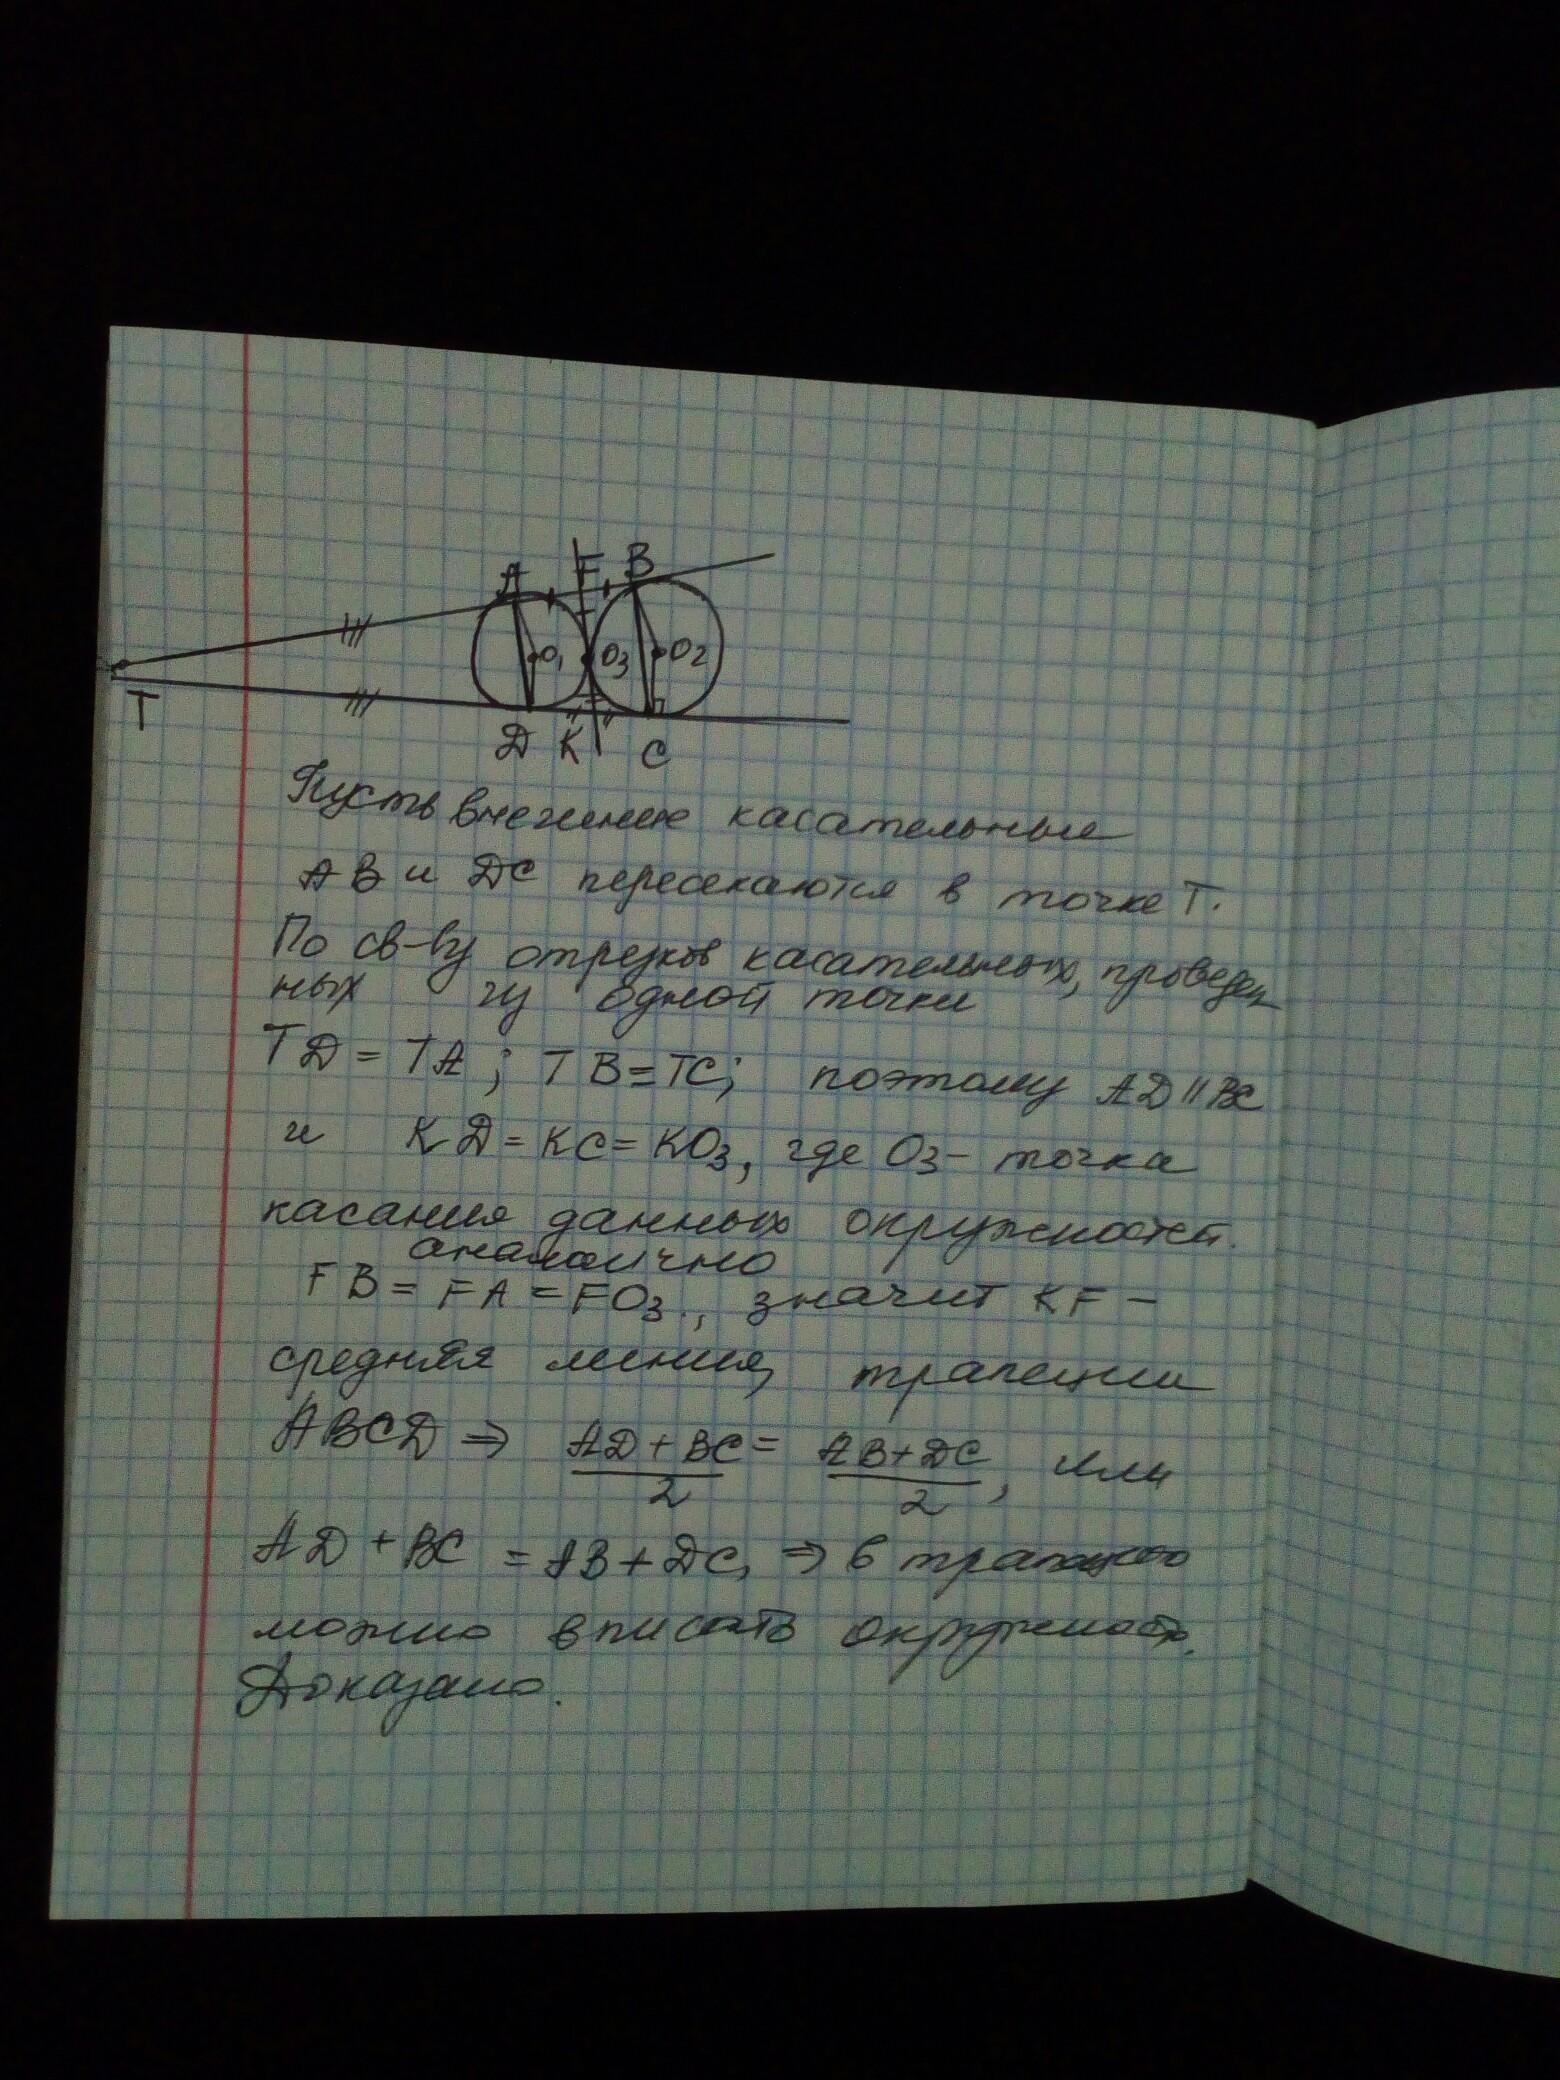 A F B
O₁ O₃ O₂
T
D K C
Пусть внешние касательные
AB и DC пересекаются в точке T.
По св-ву отрезков касательных, проведен
ных из одной точки
TD = TA ; TB = TC; поэтому AD || BC
и KD = KC = KO₃, где O₃ - точка
касания данных окружностей.
аналогично
FB = FA = FO₃., значит KF -
средняя линия трапеции
ABCD ⇒ (AD + BC)/2 = (AB + DC)/2, или
AD + BC = AB + DC, ⇒ в трапецию
можно вписать окружность.
Доказано.